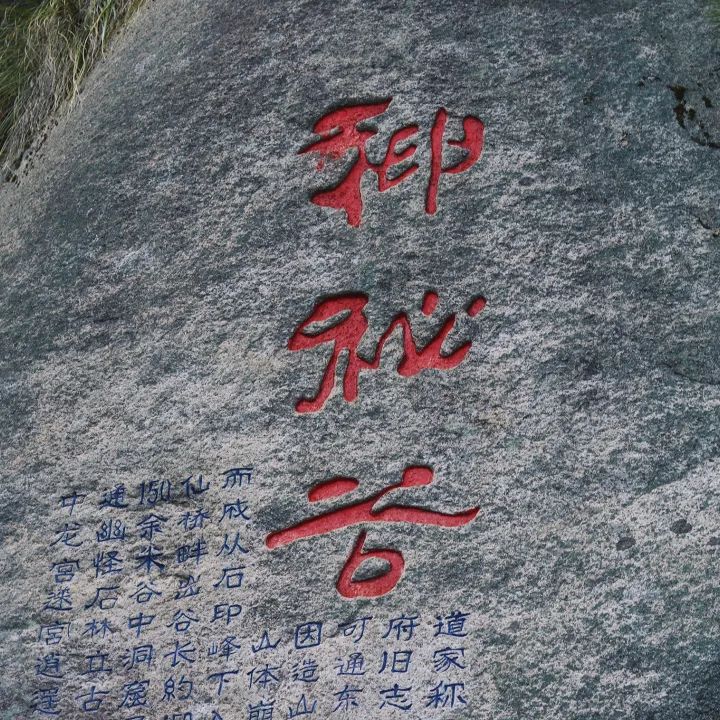 神秘谷
道家称
府旧志
可通东
因造山
山体崩
而成从石印峰下入
仙桥畔出谷长約
150余米谷中洞窟
通幽怪石林立古
中龙宫迷宫逍遥